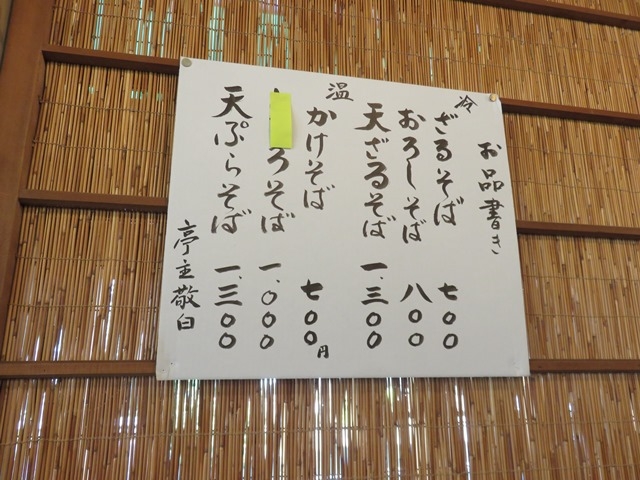 お品書き
冷
ざるそば 七〇〇
おろしそば 八〇〇
天ざるそば 一、三〇〇
温
かけそば 七〇〇円
ろそば 一、〇〇〇
天ぷらそば 一、三〇〇
亭主敬白